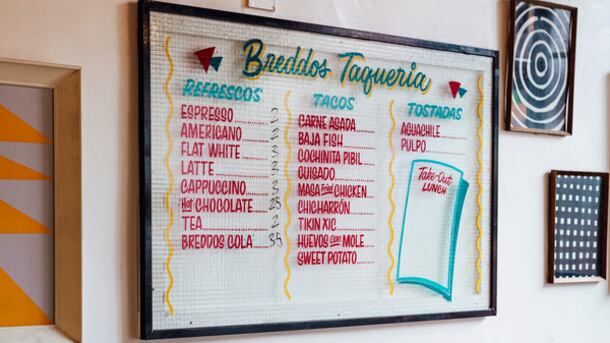 Breddos Taqueria
REFRESCOS
ESPRESSO 2
AMERICANO 2
FLAT WHITE 3
LATTE 3
CAPPUCCINO 3
Hot CHOCOLATE 25
TEA 2
BREDDOS COLA 35
TACOS
CARNE ASADA
BAJA FISH
COCHINITA PIBIL
GUISADO
MASA Fried CHICKEN
CHICHARRÓN
TIKIN XIC
HUEVOS Con MOLE
SWEET POTATO
TOSTADAS
AGUACHILE
PULPO
Take-Out
LUNCH